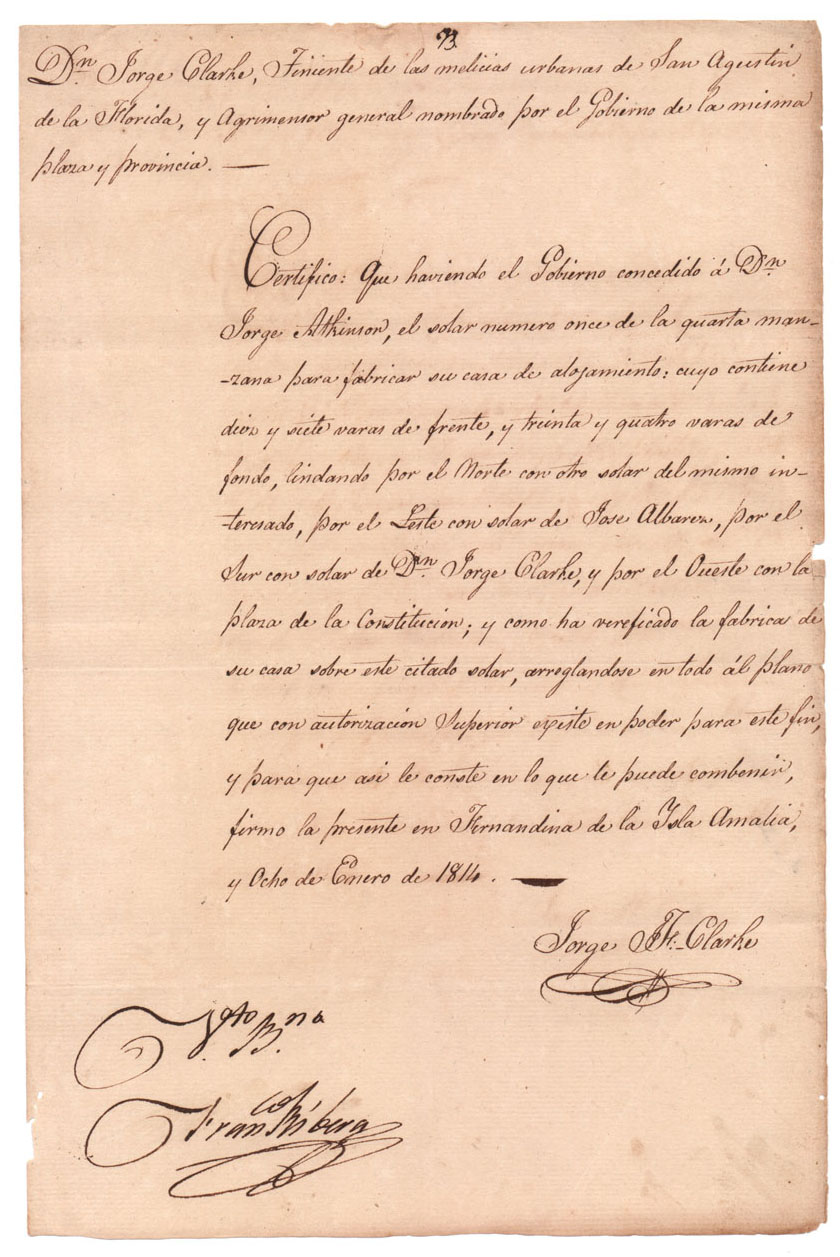 93.
Dn. Jorge Clarke, Tiniente de las melicias urbanas de San Agustin
de la Florida, y Agrimensor general nombrado por el Gobierno de la misma
plaza y provincia. —
Certifico: Que haviendo el Gobierno concedido á Dn.
Jorge Atkinson, el solar numero once de la quarta man-
-zana para fabricar su casa de alojamiento: cuyo contiene
diez y siete varas de frente, y treinta y quatro varas de
fondo, lindando por el Norte con otro solar del mismo in-
-teresado, por el Leste con solar de Jose Albarez, por el
Sur con solar de Dn. Jorge Clarke, y por el Oueste con la
plaza de la Constitucion; y como ha vereficado la fabrica de
su casa sobre este citado solar, arreglandose en todo ál plano
que con autorización Superior existe en poder para este fin,
y para que asi le conste en lo que te puede combenir,
firmo la presente en Fernandina de la Ysla Amalia,
y Ocho de Enero de 1814. —
Jorge J. F. Clarke
V.to B.na
Fran.co Ribera